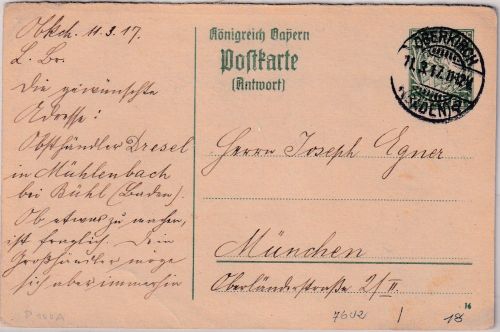 Obkch. 11.3.17.
L. Br.
Die gewünschte
Adresse:
Obsthändler Dresel
in Mühlenbach
bei Bühl (Baden).
Ob etwas zu machen,
ist fraglich. Dein
Großhändler möge
sich aber immerhin
Königreich Bayern
Postkarte
(Antwort)
OBERKIRCH
11.3.17.
(BADEN)
Herrn Joseph Egner
München
Oberländerstraße 2/II.
16
7602
18